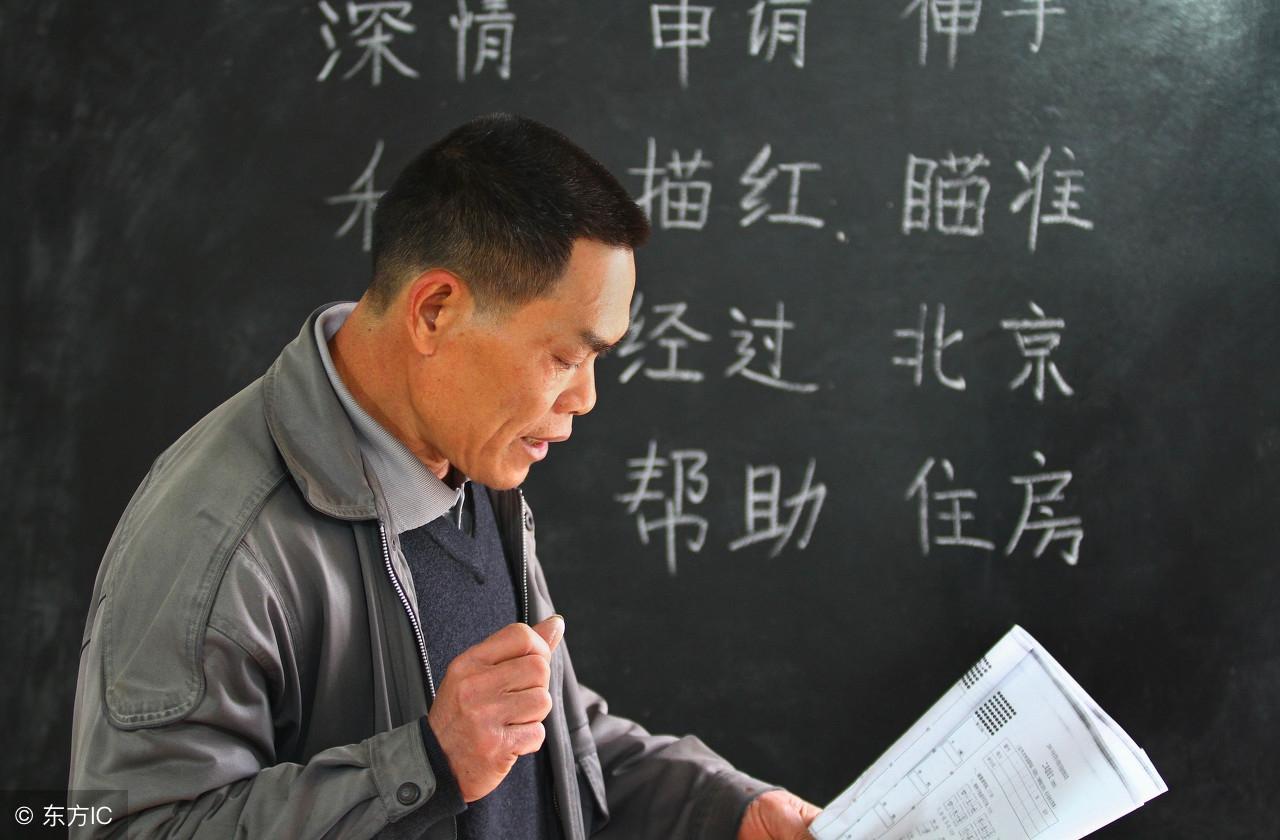 深情 申请 伸手
描红 瞄准
经过 北京
帮助 住房
© 东方IC